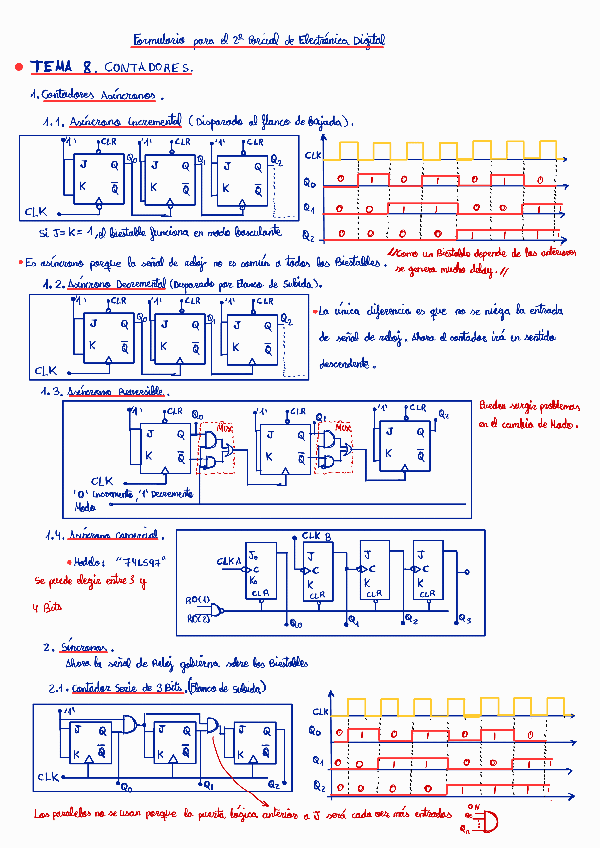 Formulario para el 2º Parcial de Electrónica Digital
• TEMA 8. CONTADORES.
1. Contadores Asíncronos.
1.1. Asíncrono Incremental (Disparado al flanco de bajada).
'1' CLR '1' CLR '1' CLR
J Q Q0 J Q Q1 J Q Q2
K Q̅ K Q̅ K Q̅
CLK
CLK
Q0 0 1 0 1 0 1 0
Q1 0 0 1 1 0 0 1
Q2 0 0 0 0 1 1 1
Si J=K=1, el biestable funciona en modo basculante
• Es asíncrono porque la señal de reloj no es común a todos los Biestables.
//Como un Biestable depende de los anteriores
se genera mucho delay.//
1.2. Asíncrono Decremental (Disparado por Flanco de Subida).
'1' CLR '1' CLR '1' CLR
J Q Q0 J Q Q1 J Q Q2
K Q̅ K Q̅ K Q̅
CLK
• La única diferencia es que no se niega la entrada
de señal de reloj. Ahora el contador irá en sentido
descendente.
1.3. Asíncrono Reversible.
'1' CLR Q0 '1' CLR Q1 '1' CLR Q2
J Q MUX J Q MUX J Q
K Q̅ K Q̅ K Q̅
CLK
'0' Incremento, '1' Decremento
Modo
Pueden surgir problemas
en el cambio de Modo.
1.4. Asíncrono Comercial.
• Modelo: "74LS97"
Se puede elegir entre 3 y
4 Bits
CLK B
CLK A
J0 J J J
C C C C
K0 K K K
CLR CLR CLR CLR
R0(1)
R0(2)
Q0 Q1 Q2 Q3
2. Síncronos.
Ahora la señal de Reloj gobierna sobre los Biestables
2.1. Contador Serie de 3 Bits. (Flanco de Subida)
'1'
J Q J Q J Q
K Q̅ K Q̅ K Q̅
CLK
Q0 Q1 Q2
CLK
Q0 0 1 0 1 0 1 0
Q1 0 0 1 1 0 0 1
Q2 0 0 0 0 1 1 1
Los paralelos no se usan porque la puerta lógica anterior a J será cada vez más entradas
Qn